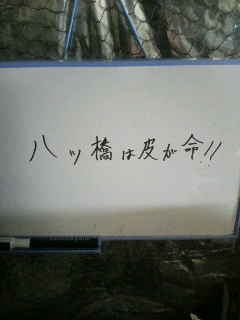 八ッ橋は皮が命!!